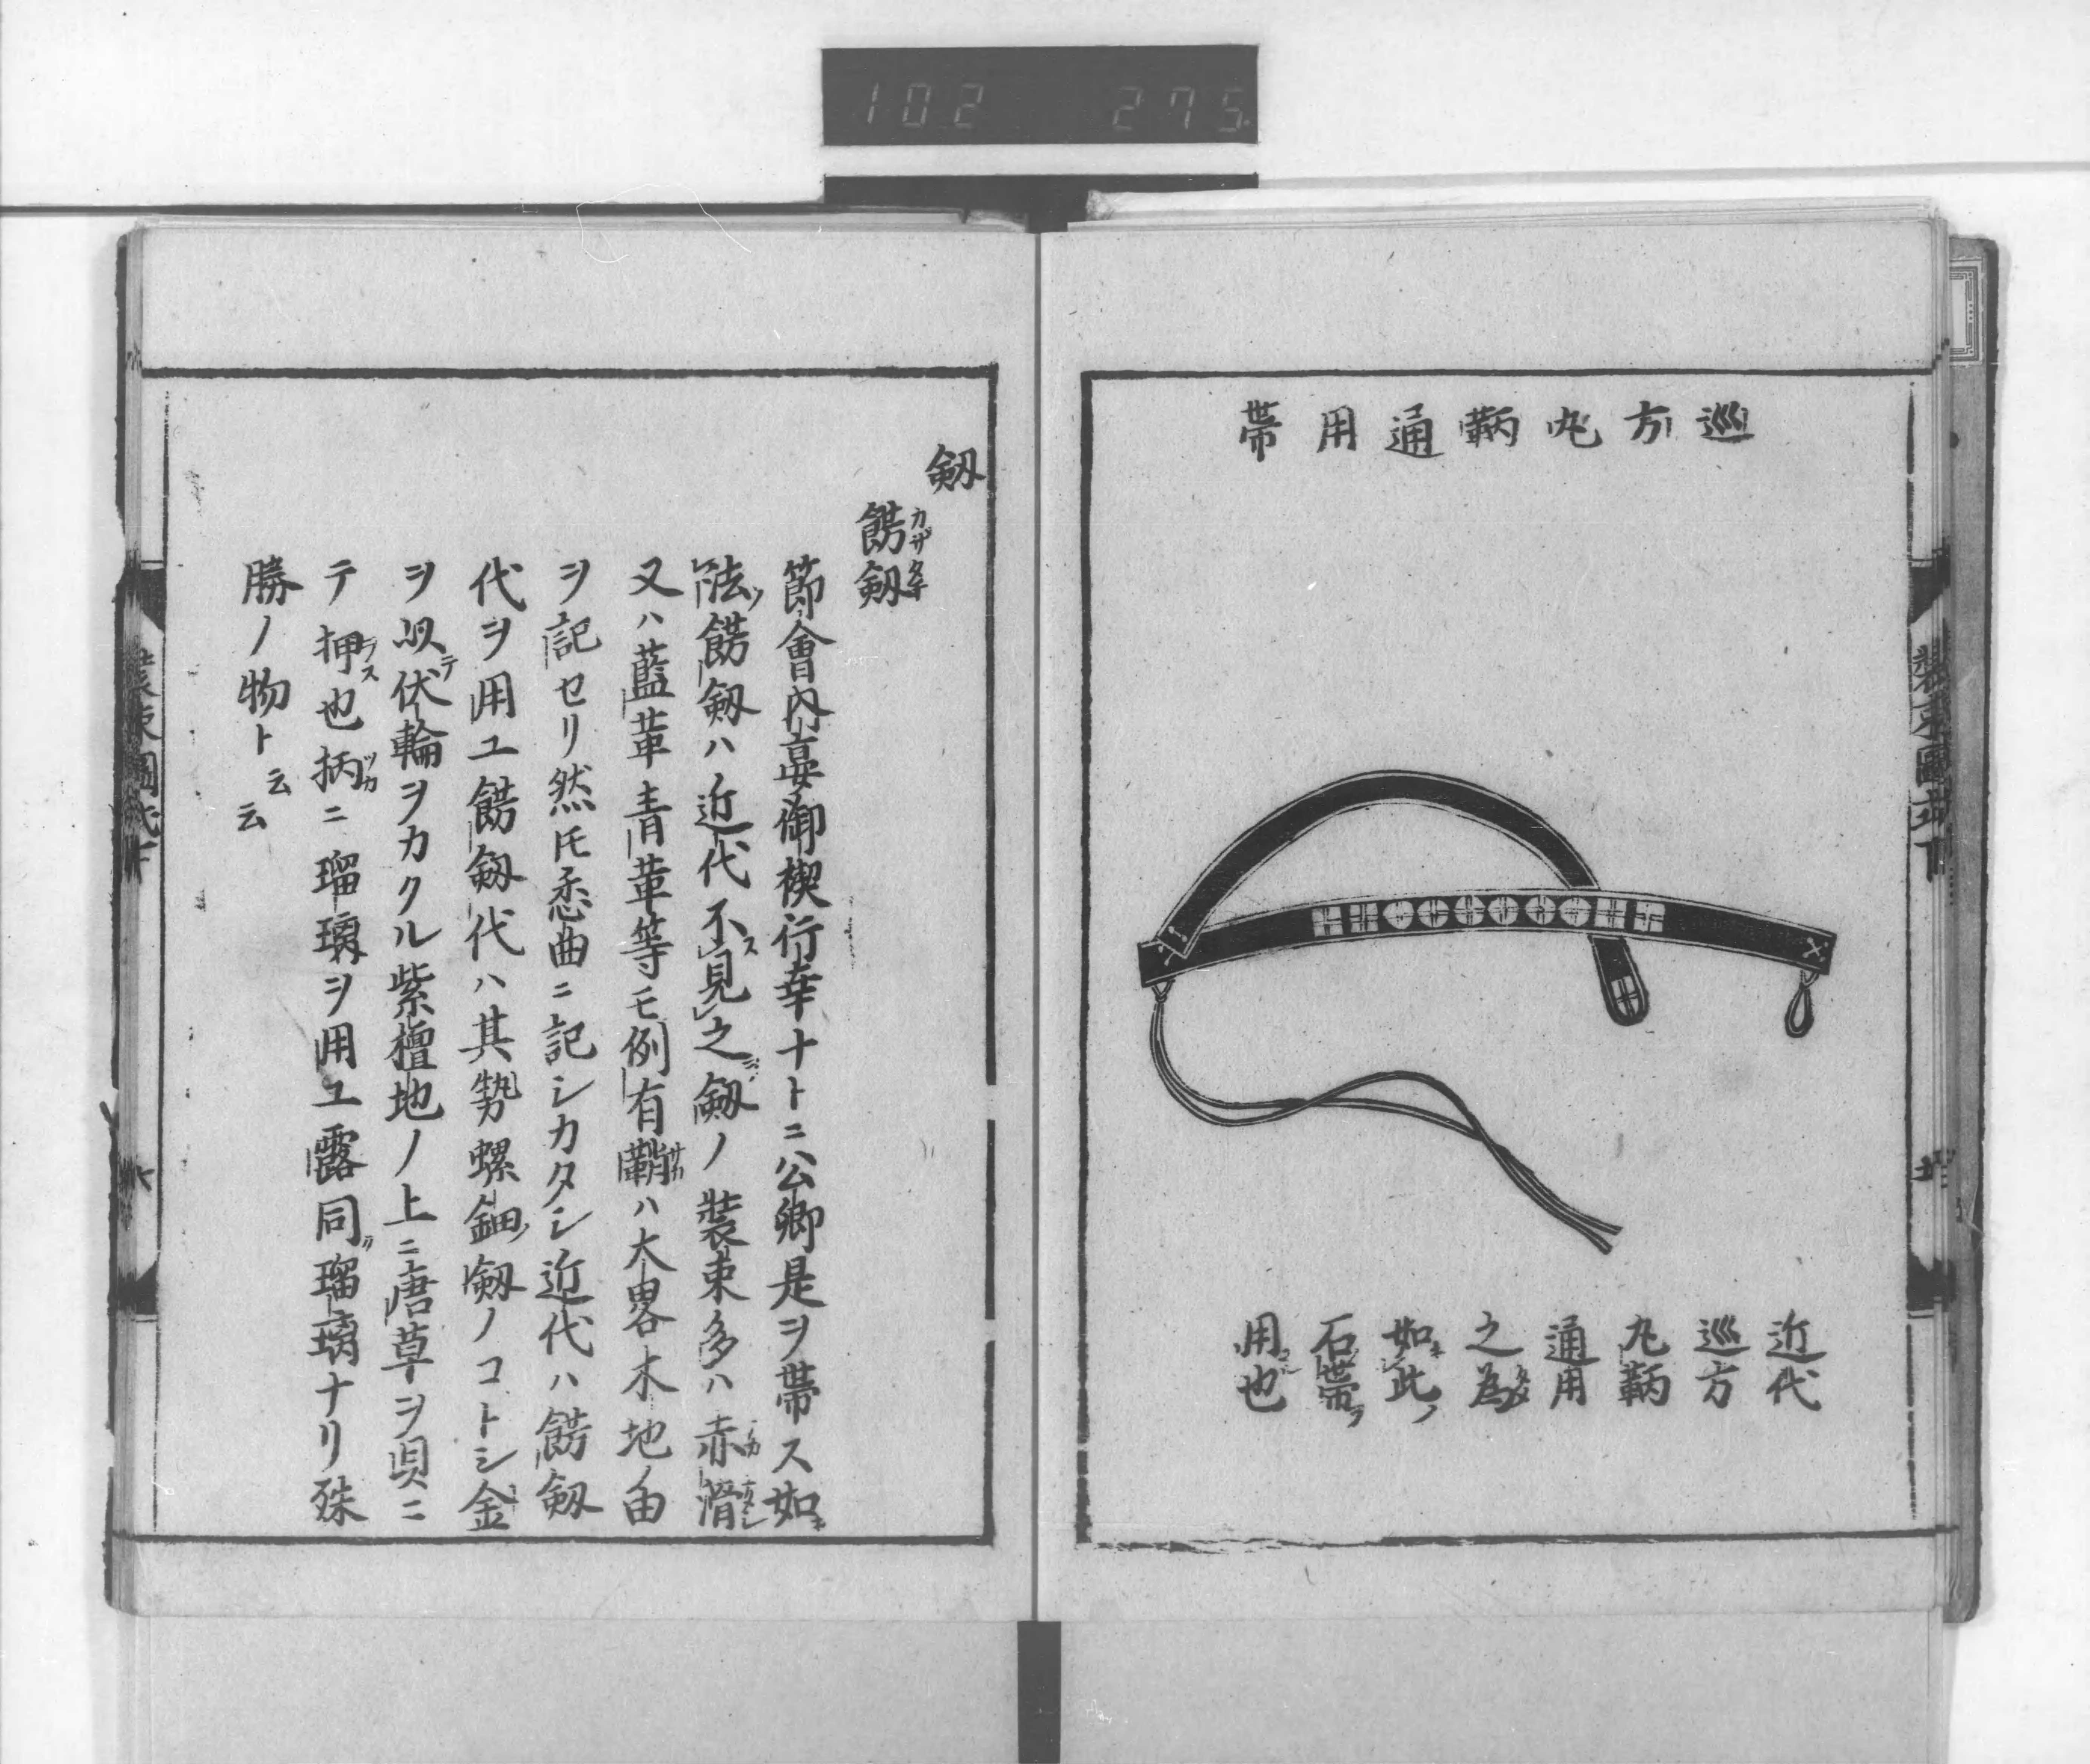 102 275
巡方丸鞆通用帯
近代
巡方
丸鞆
通用
之為
如此
石帯
用也
装束圖式下
剱
餝剱
カザタチ
節會内宴御禊行幸ナトニ公卿是ヲ帯ス如
法餝剱ハ近代不見之剱ノ装束多ハ赤滑
又ハ藍革青革等モ例有鞘ハ大畧木地ノ由
ヲ記セリ然𪜈悉曲ニ記シカタシ近代ハ餝剱
代ヲ用ユ餝剱代ハ其勢螺鈿剱ノコトシ金
ヲ以伏輪ヲカクル紫檀地ノ上ニ唐草ヲ貝ニ
テ押也柄ニ瑠璃ヲ用ユ露同瑠璃ナリ殊
勝ノ物ト云云
装束圖式下
六